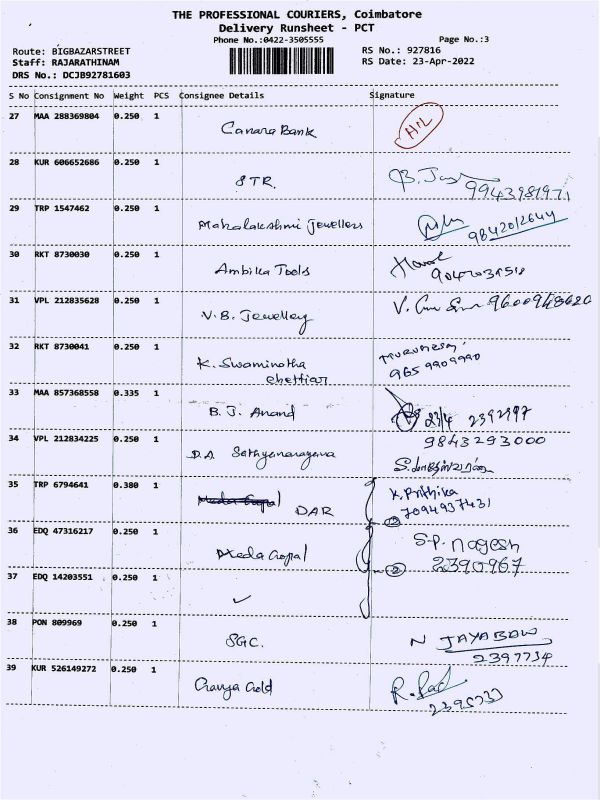 THE PROFESSIONAL COURIERS, Coimbatore
Delivery Runsheet - PCT
Phone No.:0422-3505555 Page No.:3
Route: BIGBAZARSTREET RS No.: 927816
Staff: RAJARATHINAM RS Date: 23-Apr-2022
DRS No.: DCJB92781603
S No Consignment No Weight PCS Consignee Details Signature
27 MAA 288369804 0.250 1 Canara Bank
28 KUR 606652686 0.250 1 STR.
9943981971
29 TRP 1547462 0.250 1 Mahalakshmi Jewellers
9842012644
30 RKT 8730030 0.250 1 Ambika Tools
31 VPL 212835628 0.250 1 V.B. Jewellery
32 RKT 8730041 0.250 1 K. Swaminatha
chettiar
9659909990
33 MAA 857368558 0.335 1 B.J. Anand 23/4 2392997
34 VPL 212834225 0.250 1 D.A Sathyanarayana 9843293000
35 TRP 6794641 0.380 1 DAR K. Prithika
7094937431
36 EDQ 47316217 0.250 1 Meda Gopal S.P. Nagesh
2390967
37 EDQ 14203551 0.250 1 ✓
38 PON 809969 0.250 1 SGC.
2397734
39 KUR 526149272 0.250 1